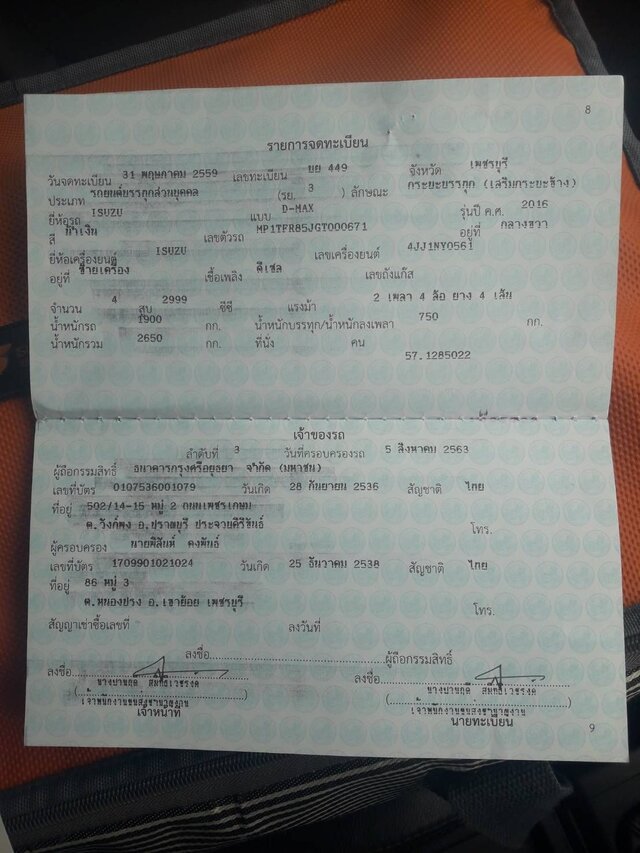 8
รายการจดทะเบียน
วันจดทะเบียน 31 พฤษภาคม 2559 เลขทะเบียน ยย 449 จังหวัด เพชรบุรี
ประเภท รถยนต์บรรทุกส่วนบุคคล (รย. 3 ) ลักษณะ กระบะบรรทุก (เสริมกระบะข้าง)
ยี่ห้อรถ ISUZU แบบ D-MAX รุ่นปี ค.ศ. 2016
สี น้ำเงิน เลขตัวรถ MP1TFR85JGT000671 อยู่ที่ กลางขวา
ยี่ห้อเครื่องยนต์ ISUZU เลขเครื่องยนต์ 4JJ1NY0561
อยู่ที่ ซ้ายเครื่อง เชื้อเพลิง ดีเซล เลขถังแก๊ส
จำนวน 4 สูบ 2999 ซีซี แรงม้า 2 เพลา 4 ล้อ ยาง 4 เส้น
น้ำหนักรถ 1900 กก. น้ำหนักบรรทุก/น้ำหนักลงเพลา 750 กก.
น้ำหนักรวม 2650 กก. ที่นั่ง คน
57.1285022
เจ้าของรถ
ลำดับที่ 3 วันที่ครอบครองรถ 5 สิงหาคม 2563
ผู้ถือกรรมสิทธิ์ ธนาคารกรุงศรีอยุธยา จำกัด (มหาชน)
เลขที่บัตร 0107536001079 วันเกิด 28 กันยายน 2536 สัญชาติ ไทย
ที่อยู่ 502/14-15 หมู่ 2 ถนนเพชรเกษม
ต.วังก์พง อ.ปราณบุรี ประจวบคีรีขันธ์ โทร.
ผู้ครอบครอง นายพิสันห์ คงพันธ์
เลขที่บัตร 1709901021024 วันเกิด 25 ธันวาคม 2538 สัญชาติ ไทย
ที่อยู่ 86 หมู่ 3
ต.หนองปรง อ.เขาย้อย เพชรบุรี โทร.
สัญญาเช่าซื้อเลขที่ ลงวันที่
ลงชื่อ ผู้ถือกรรมสิทธิ์
ลงชื่อ ลงชื่อ
เจ้าพนักงานขนส่งชำนาญงาน เจ้าพนักงานขนส่งชำนาญงาน
เจ้าหน้าที่ นายทะเบียน
9